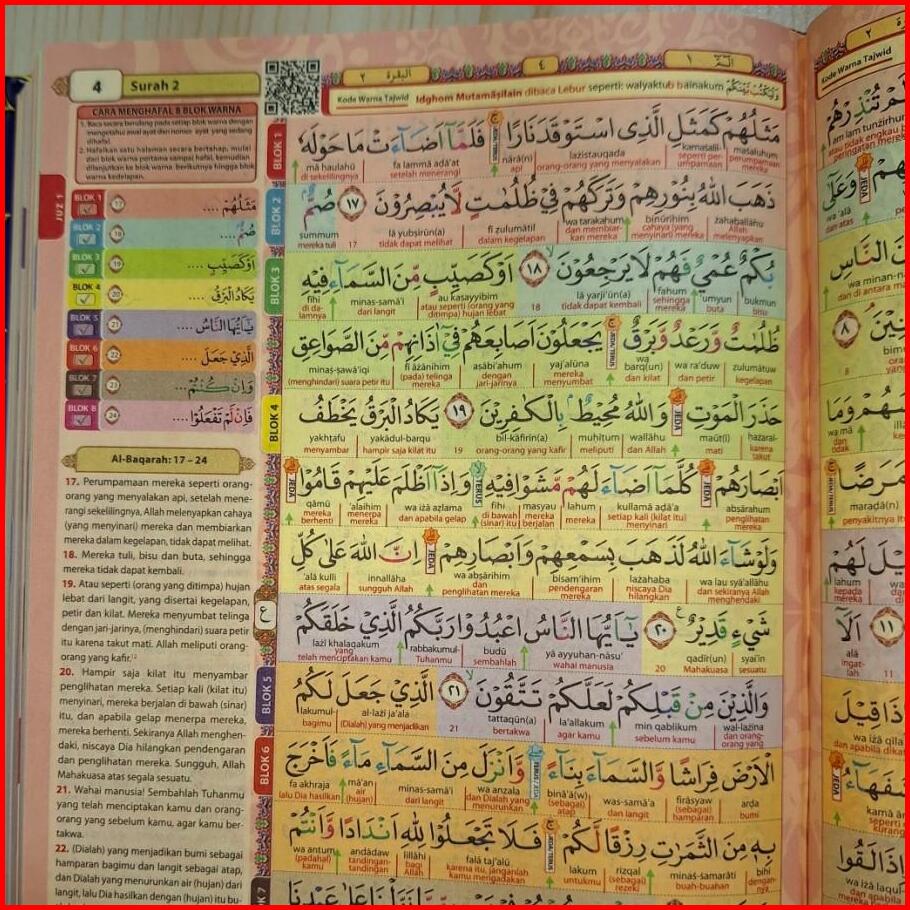 4
Surah 2
البقرة ٢
٤
الۤمّۤ ١
CARA MENGHAFAL 8 BLOK WARNA
1. Baca secara berulang pada setiap blok warna dengan
mengetahui awal ayat dan nomor ayat yang sedang
dihafal.
2. Hafalan satu halaman secara bertahap, mulai
dari blok warna pertama sampai hafal, kemudian
dilanjutkan ke blok warna berikutnya hingga blok
warna kedelapan.
JUZ 1
BLOK 1 17 مَثَلُهُمْ ....
BLOK 2 18 صُمٌّ ....
BLOK 3 19 اَوْ كَصَيِّبٍ ....
BLOK 4 20 يَكَادُ الْبَرْقُ ....
BLOK 5 21 يٰٓاَيُّهَا النَّاسُ ....
BLOK 6 22 الَّذِيْ جَعَلَ ....
BLOK 7 23 وَاِنْ كُنْتُمْ ....
BLOK 8 24 فَاِنْ لَّمْ تَفْعَلُوْا ....
Al-Baqarah: 17 – 24
17. Perumpamaan mereka seperti orang-
orang yang menyalakan api, setelah mene-
rangi sekelilingnya, Allah menyapkan cahaya
(yang menyinari) mereka dan membiarkan
mereka dalam kegelapan, tidak dapat melihat.
18. Mereka tuli, bisu dan buta, sehingga
mereka tidak dapat kembali.
19. Atau seperti (orang yang ditimpa) hujan
lebat dari langit, yang disertai kegelapan,
petir dan kilat. Mereka menyumbat telinga
dengan jari-jarinya, (menghindari) suara petir
itu karena takut mati. Allah meliputi orang-
orang yang kafir.
20. Hampir saja kilat itu menyambar
penglihatan mereka. Setiap kali (kilat itu)
menyinari, mereka berjalan di bawah (sinar)
itu, dan apabila gelap menerpa mereka,
mereka berhenti. Sekiranya Allah menghen-
daki, niscaya Dia hilangkan pendengaran
dan penglihatan mereka. Sungguh, Allah
Mahakuasa atas segala sesuatu.
21. Wahai manusia! Sembahlah Tuhanmu
yang telah menciptakan kamu dan orang-
orang yang sebelum kamu, agar kamu ber-
takwa.
22. (Dialah) yang menjadikan bumi sebagai
hamparan bagimu dan langit sebagai atap,
dan Dialah yang menurunkan air (hujan) dari
langit, lalu Dia hasilkan dengan (hujan) itu bu-
Kode Warna Tajwid Idghom Mutamāṡilain dibaca Lebur seperti: walyaktub bainakum وَلْيَكْتُبْ بَيْنَكُمْ
BLOK 1
مَثَلُهُمْ كَمَثَلِ الَّذِى اسْتَوْقَدَ نَارًا ۚ فَلَمَّآ اَضَاۤءَتْ مَا حَوْلَهٗ
maṡaluhum kamaṡalil- lażistauqada nārā(n) fa lammā aḍā'at mā ḥaulahū
perumpamaan mereka seperti per-umpamaan orang-orang yang menyalakan api setelah menerangi di sekelilingnya
BLOK 2
ذَهَبَ اللّٰهُ بِنُوْرِهِمْ وَتَرَكَهُمْ فِيْ ظُلُمٰتٍ لَّا يُبْصِرُوْنَ ١٧ صُمٌّ ۢ
żahaballāhu binūrihim wa tarakahum fī ẓulumātil lā yubṣirūn(a) 17 ṣummum
Allah melenyapkan cahaya (yang menyinari) mereka dan membiar-kan mereka dalam kegelapan tidak dapat melihat mereka tuli
BLOK 3
بُكْمٌ عُمْيٌ فَهُمْ لَا يَرْجِعُوْنَ ۙ ١٨ اَوْ كَصَيِّبٍ مِّنَ السَّمَاۤءِ فِيْهِ
bukmun 'umyun fahum lā yarji'ūn(a) 18 au kaṣayyibim minas-samā'i fīhi
bisu buta sehingga mereka tidak dapat kembali atau seperti (orang yang ditimpa) hujan lebat dari langit di da-lamnya
ظُلُمٰتٌ وَّرَعْدٌ وَّبَرْقٌ ۚ يَجْعَلُوْنَ اَصَابِعَهُمْ فِيْٓ اٰذَانِهِمْ مِّنَ الصَّوَاعِقِ
ẓulumātuw wa ra'duw wa barq(un) yaj'alūna aṣābi'ahum fī āżānihim minaṣ-ṣawā'iqi
kegelapan dan petir dan kilat mereka menyumbat dengan jari-jarinya (pada) telinga mereka (menghindari) suara petir itu
BLOK 4
حَذَرَ الْمَوْتِ ۗ وَاللّٰهُ مُحِيْطٌ ۢ بِالْكٰفِرِيْنَ ١٩ يَكَادُ الْبَرْقُ يَخْطَفُ
ḥażaral- maūt(i) wallāhu muḥīṭum bil-kāfirīn(a) 19 yakādul-barqu yakhṭafu
karena takut mati dan Allah meliputi orang-orang yang kafir hampir saja kilat itu menyambar
اَبْصَارَهُمْ ۗ كُلَّمَآ اَضَاۤءَ لَهُمْ مَّشَوْا فِيْهِ ۙ وَاِذَآ اَظْلَمَ عَلَيْهِمْ قَامُوْا ۗ
abṣārahum kullamā aḍā'a lahum masyau fīhi wa iżā aẓlama 'alaihim qāmū
penglihatan mereka setiap kali (kilat itu) menyinari mereka berjalan di bawah (sinar) itu dan apabila gelap menerpa mereka mereka berhenti
وَلَوْ شَاۤءَ اللّٰهُ لَذَهَبَ بِسَمْعِهِمْ وَاَبْصَارِهِمْ ۗ اِنَّ اللّٰهَ عَلٰى كُلِّ
wa lau syā'allāhu lażahaba bisam'ihim wa abṣārihim innallāha 'alā kulli
dan sekiranya Allah menghendaki niscaya Dia hilangkan pendengaran mereka dan penglihatan mereka sungguh Allah atas segala
شَيْءٍ قَدِيْرٌ ࣖ ٢٠ يٰٓاَيُّهَا النَّاسُ اعْبُدُوْا رَبَّكُمُ الَّذِيْ خَلَقَكُمْ
syai'in qadīr(un) 20 yā ayyuhan-nāsu' budū rabbakumul- lażī khalaqakum
sesuatu Mahakuasa wahai manusia sembahlah Tuhanmu yang telah menciptakan kamu
BLOK 5
وَالَّذِيْنَ مِنْ قَبْلِكُمْ لَعَلَّكُمْ تَتَّقُوْنَ ۙ ٢١ الَّذِيْ جَعَلَ لَكُمُ
wal-lażīna min qablikum la'allakum tattaqūn(a) 21 al-lażī ja'ala lakumul-
dan orang-orang yang sebelum kamu agar kamu bertakwa (Dialah) yang menjadikan bagimu
BLOK 6
الْاَرْضَ فِرَاشًا وَّالسَّمَاۤءَ بِنَاۤءً ۖ وَّاَنْزَلَ مِنَ السَّمَاۤءِ مَاۤءً فَاَخْرَجَ
arḍa firāsyaw was-samā'a binā'ā(w) wa anzala minas-samā'i mā'an fa akhraja
bumi (sebagai) hamparan dan langit (sebagai) atap dan Dialah yang menurunkan dari langit air (hujan) lalu Dia hasilkan
بِهٖ مِنَ الثَّمَرٰتِ رِزْقًا لَّكُمْ ۚ فَلَا تَجْعَلُوْا لِلّٰهِ اَنْدَادًا وَّاَنْتُمْ
bihī minaṡ-ṡamarāti rizqal lakum falā taj'alū lillāhi andādaw wa antum
dengan-nya buah-buahan (sebagai) rezeki untukmu karena itu, janganlah kamu mengadakan bagi Allah tandingan-tandingan (padahal) kamu
Kode Warna Tajwid